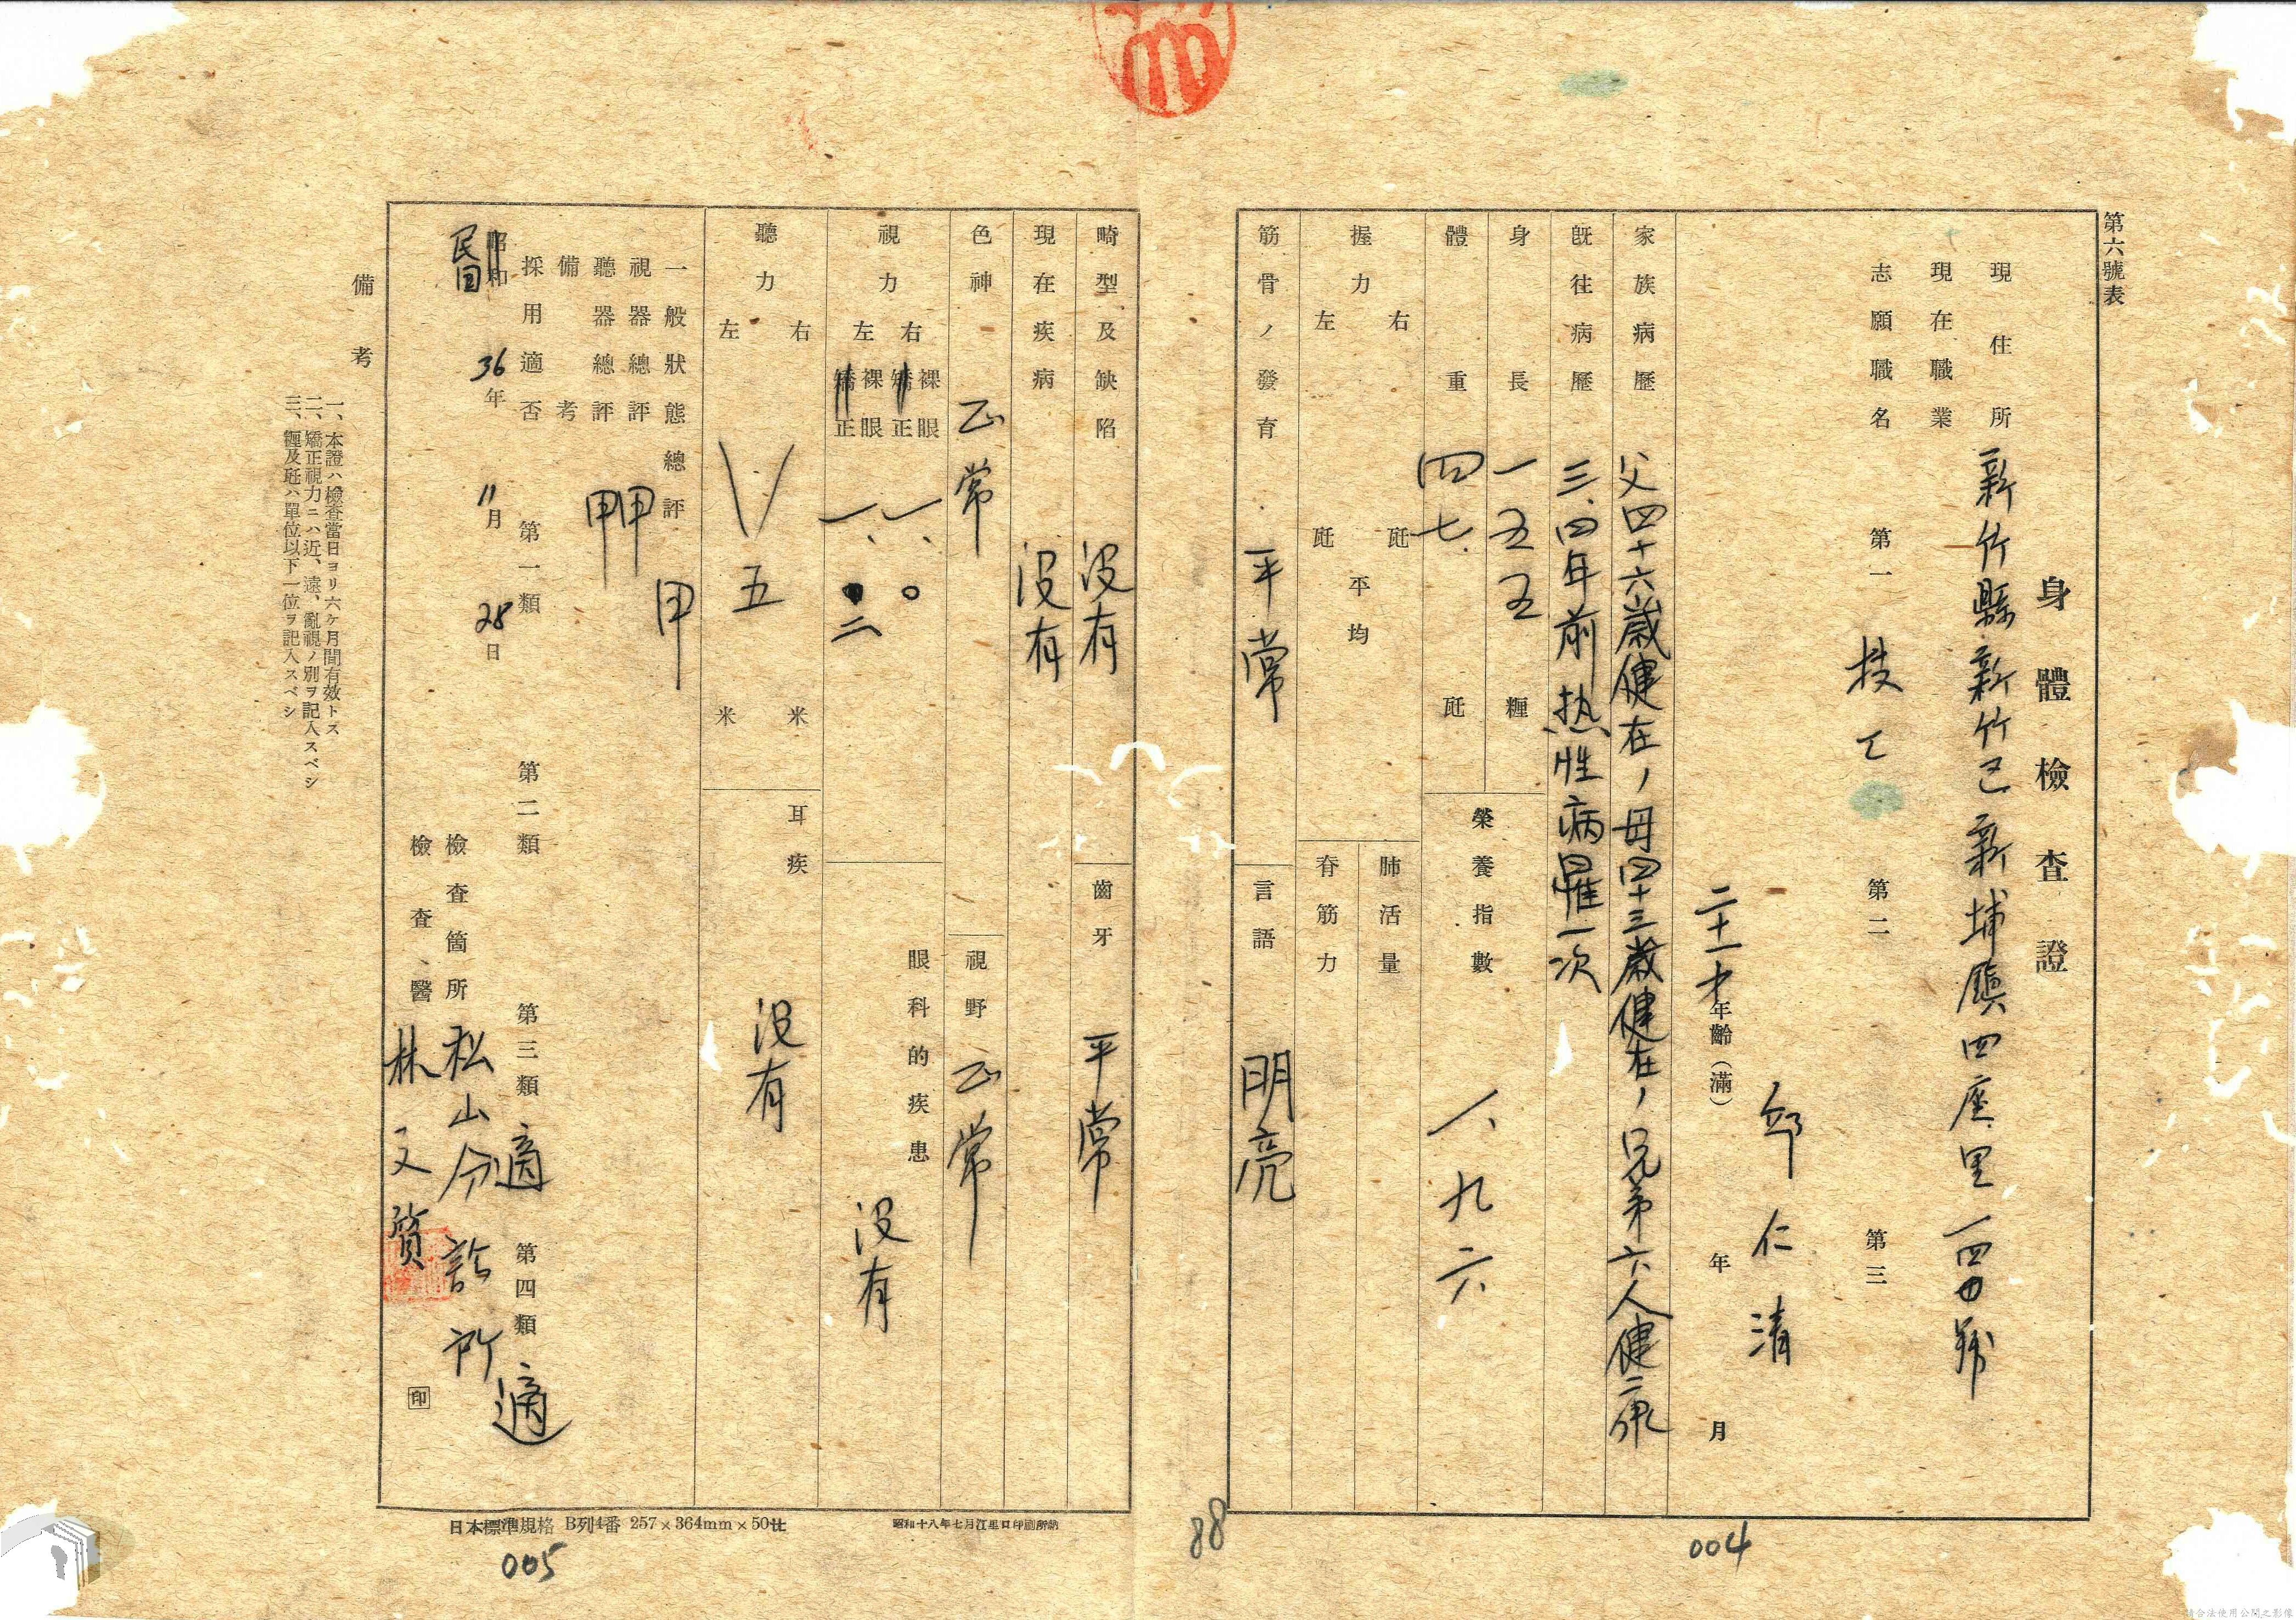 第六號表
身體檢查證
現住所 新竹縣新竹區新埔鎮四座里一四〇號
現在職業
志願職名 第一 技工 第二 第三
邱仁清
二十一才 年齡(滿) 年 月
家族病歷 父四十六歲健在,母四十三歲健在,兄弟六人健在
既往病歷 三、四年前热性病罹一次
身長 一五五 糎
體重 四七. 瓩
榮養指數 一、九六
握力 右 瓩 左 瓩 平均
肺活量
脊筋力
筋骨ノ發育 平常
言語 明亮
畸型及缺陷 沒有
齒牙 平常
現在疾病 沒有
色神 正常
視野 正常
視力 右 裸眼 矯正 一、〇
左 裸眼 矯正 一、二
眼科的疾患 沒有
聽力 右 米 左 米 五
耳疾 沒有
一般狀態總評 甲
視器總評 甲
聽器總評 甲
備考
採用適否 第一類 第二類 第三類 適 第四類 適
昭和 民國 36年 11月 28日
檢查箇所 松山分診所
檢查醫 林文質 印
備考
一、本證ハ檢查當日ヨリ六ケ月間有效トス
二、矯正視力ニハ近、遠、亂視ノ別ヲ記入スベシ
三、糎及瓩ハ單位以下一位ヲ記入スベシ
日本標準規格 B列4番 257×364mm×50廿
昭和十八年七月江里口印刷所納
88
004
005